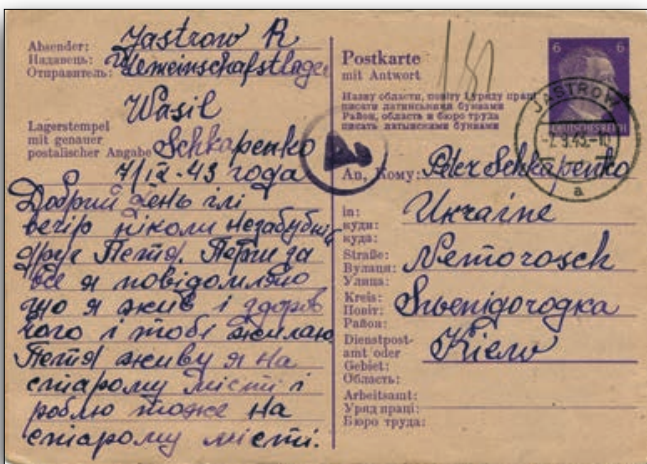 Absender:
Надавець:
Отправитель:
Jastrow R
Gemeinschaftslager
Wasil
Schkapenko
Lagerstempel
mit genauer
postalischer Angabe
7/IX-43 года
Добрий день ілі
вечір ніколи незабубний
друг Петя. Перш за
все я повідомляю
що я жив і здоров
чого і тобі желаю
Петя живу я на
старому місті і
роблю тоже на
старому місті.
Postkarte
mit Antwort
Назву области, повіту і уряду праці
писати латинськими буквами
Район, область и бюро труда
писать латынскими буквами
6 6
DEUTSCHES REICH
JASTROW
-7.9.43.-10
a
A
An, Кому: Peter Schkapenko
in:
куди:
куда:
Ukraine
Straße:
Вулиця:
Улица:
Nemorosch
Kreis:
Повіт:
Район:
Swenigorodka
Dienstpost-
amt oder
Gebiet:
Область:
Kiew
Arbeitsamt:
Уряд праці:
Бюро труда: